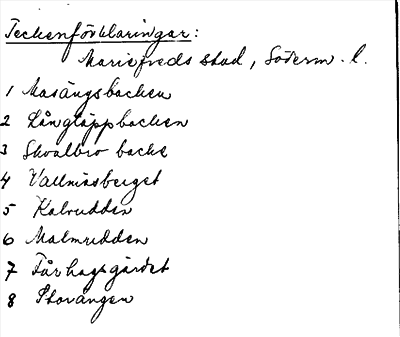 Teckenförklaringar:
Mariefreds stad, Söderm. l.
1 Masängsbacken
2 Långtäppbacken
3 Skvalbro backe
4 Vallmäsberget
5 Kalvudden
6 Malmudden
7 Fårhagsgärdet
8 Storängen